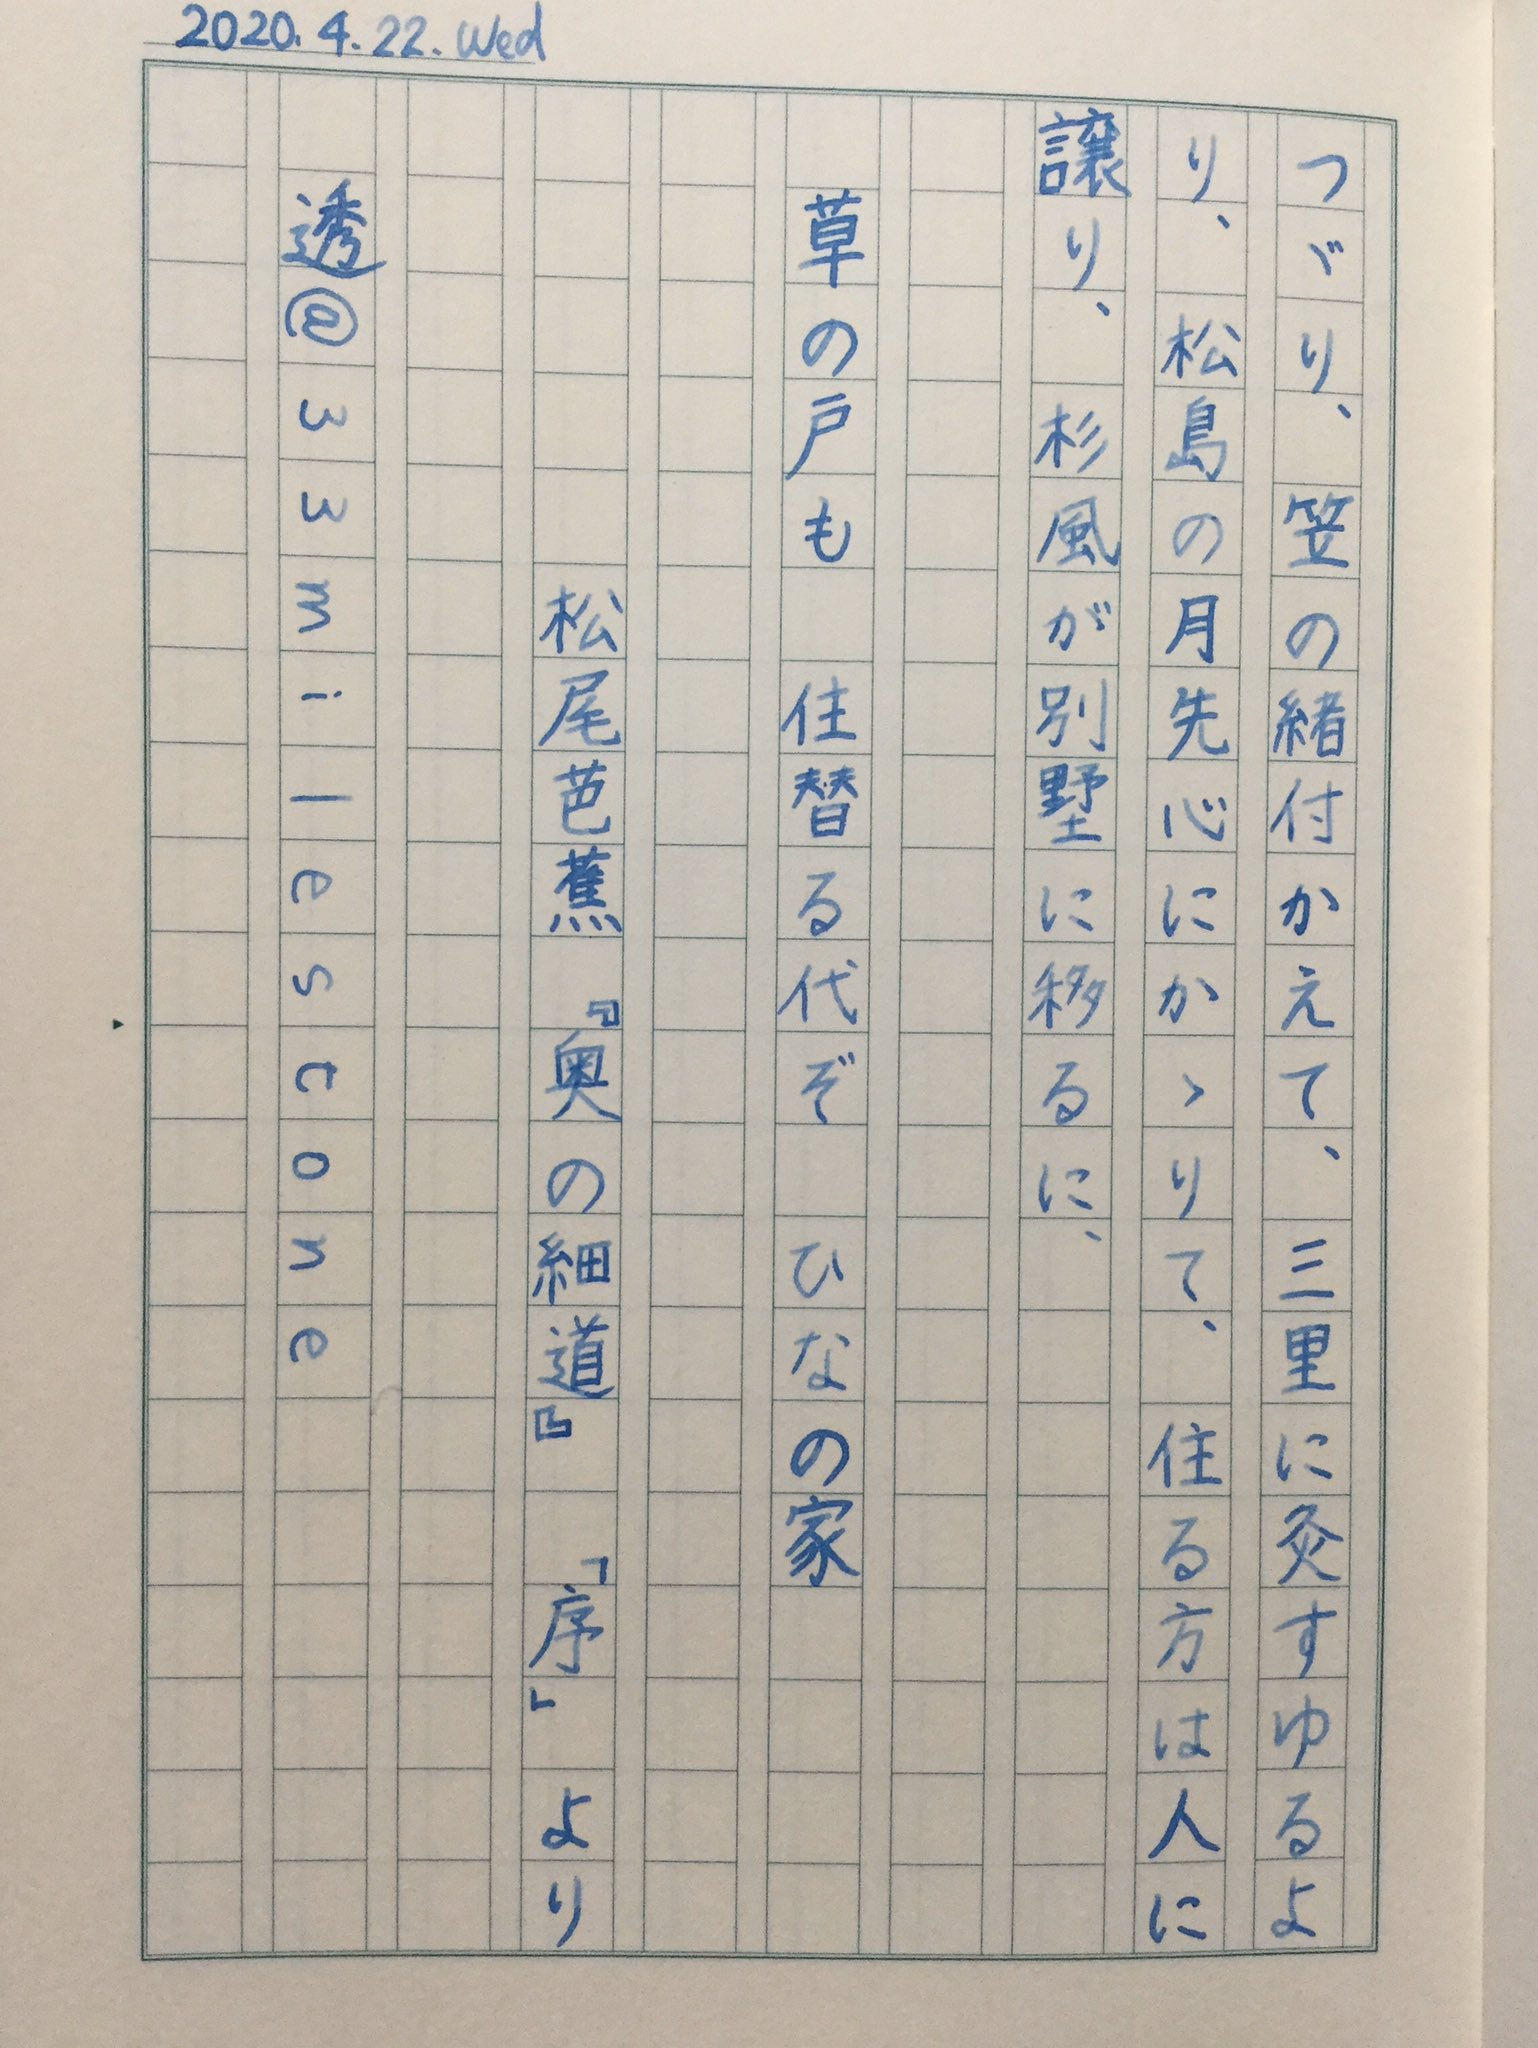 2020.4.22.Wed
つゞり、笠の緒付かえて、三里に灸すゆるよ
り、松島の月先心にかゝりて、住る方は人に
譲り、杉風が別墅に移るに、
草の戸も　住替る代ぞ　ひなの家
松尾芭蕉『奥の細道』「序」より
透@33milestone